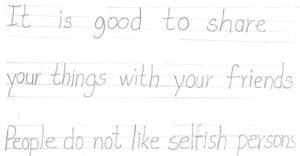 It is good to share
your things with your friends
People do not like selfish persons